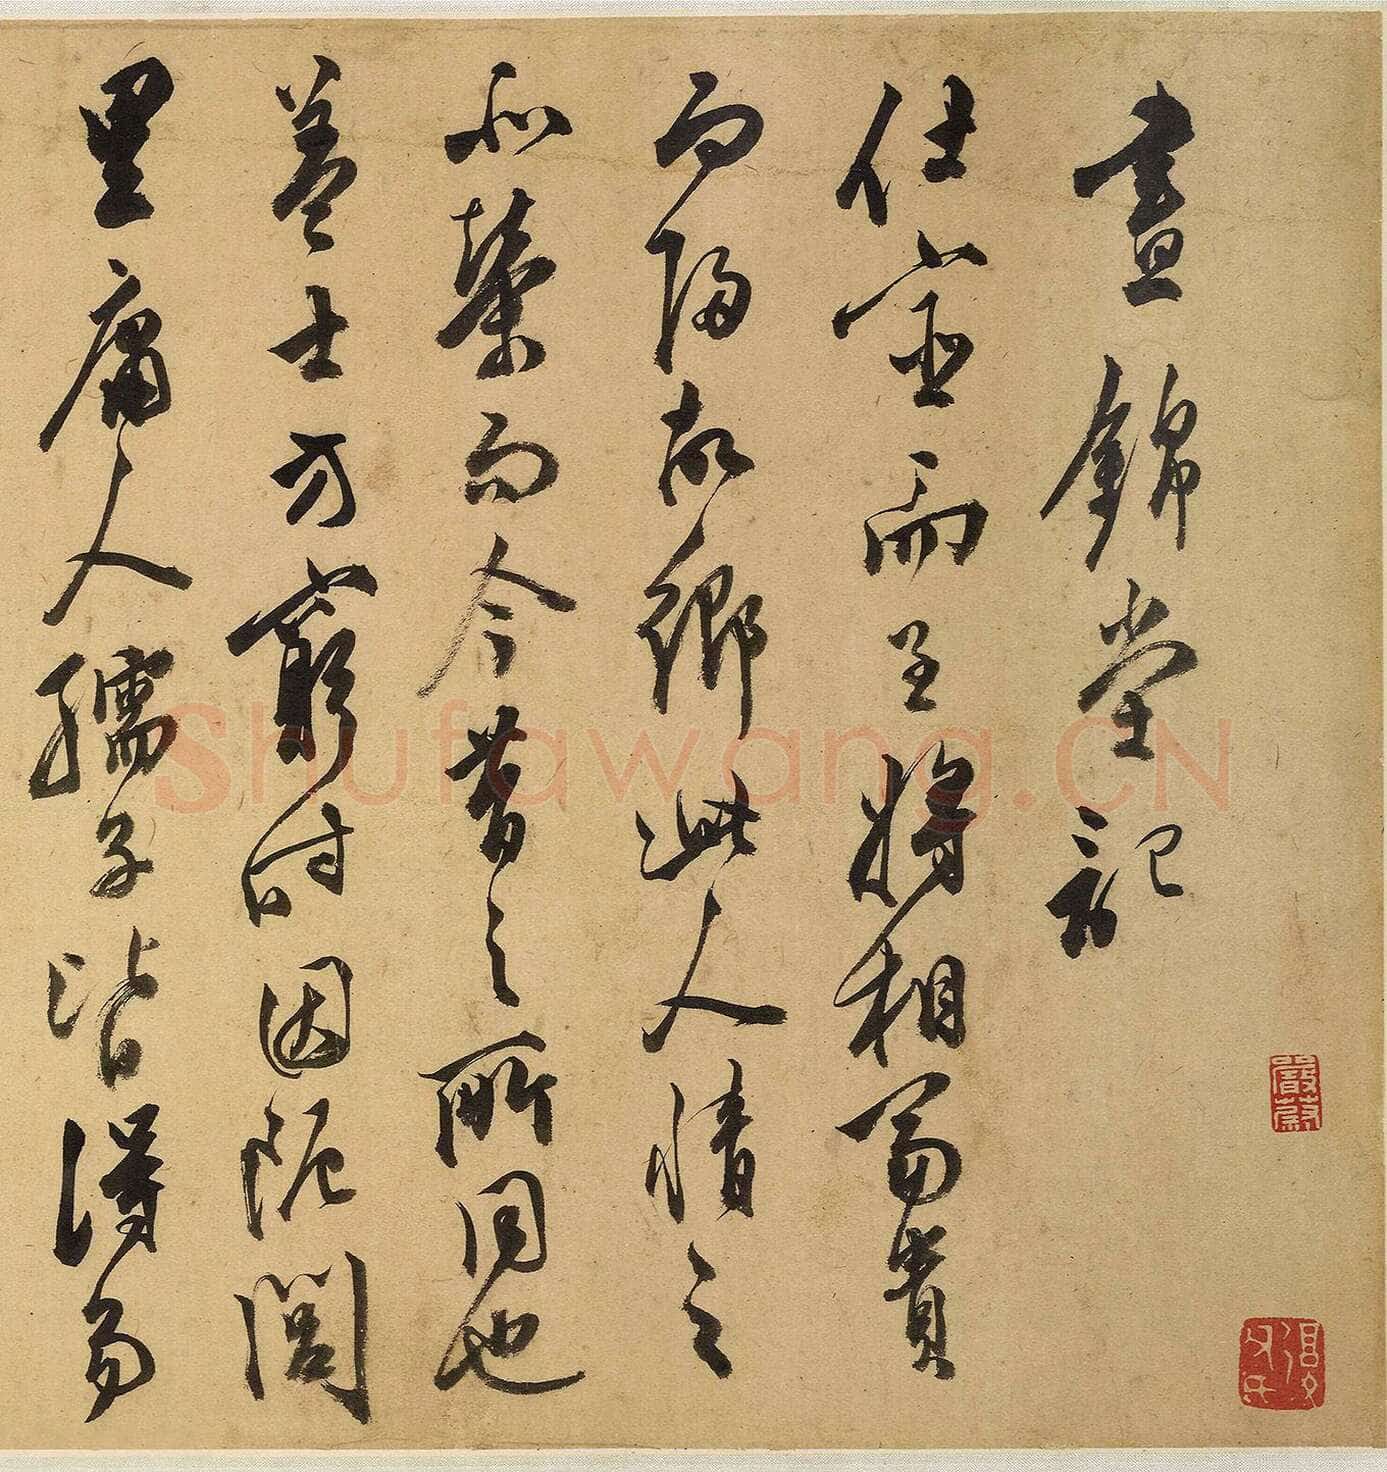 晝錦堂記
仕宦而至將相富貴
而歸故鄉此人情之
所榮而今昔之所同也
蓋士方窮時困阨閭
里庸人孺子皆得易
嚴蔚
Shufawang.CN